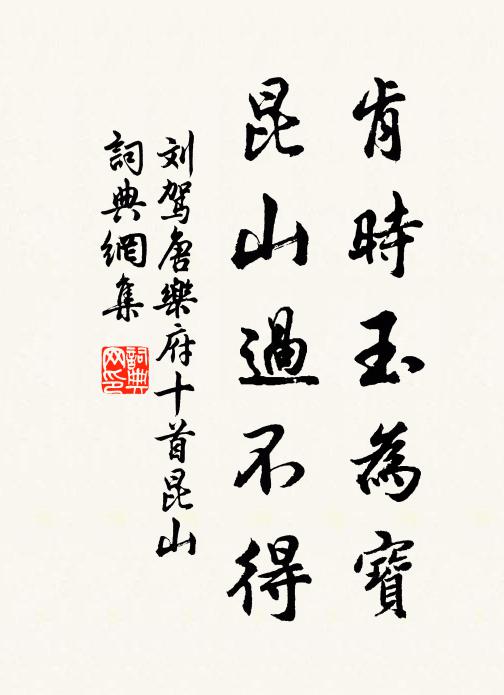 肯時玉為寶
昆山過不得
刘駕唐樂府十首昆山
詞典網集
詞典网印